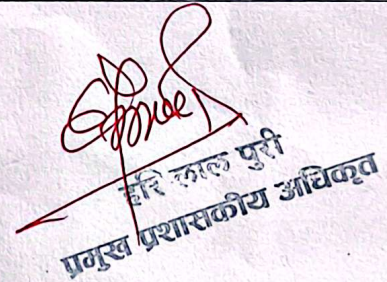 हरि लाल पुरी
प्रमुख प्रशासकीय अधिकृत